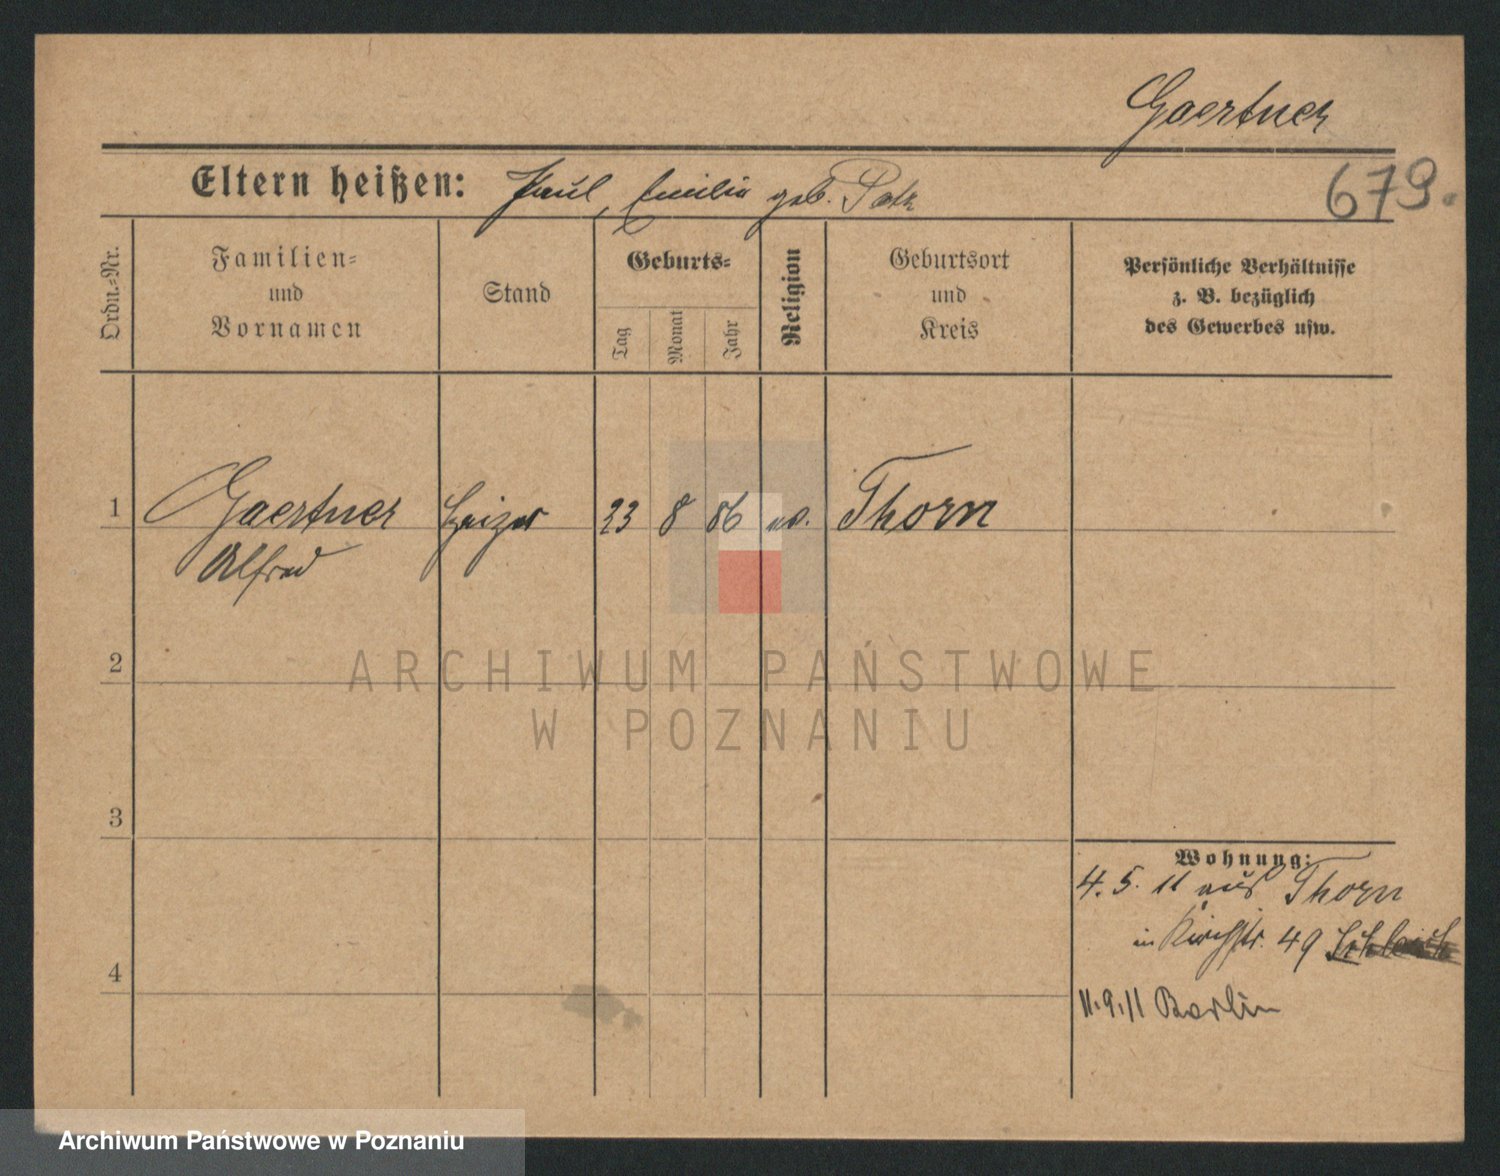 Gaertner
Eltern heißen: Paul, Emilie geb. Patz
679.
Ordn.-Nr.
Familien-
und
Vornamen
Stand
Geburts-
Tag
Monat
Jahr
Religion
Geburtsort
und
Kreis
Persönliche Verhältnisse
z. B. bezüglich
des Gewerbes usw.
1 Gaertner Heizer 23 8 86 ev. Thorn
Alfred
2
ARCHIWUM PAŃSTWOWE
W POZNANIU
3
Wohnung:
4. 5. 11 aus Thorn
in Kirchstr. 49
4
11.9.11 Berlin
Archiwum Państwowe w Poznaniu